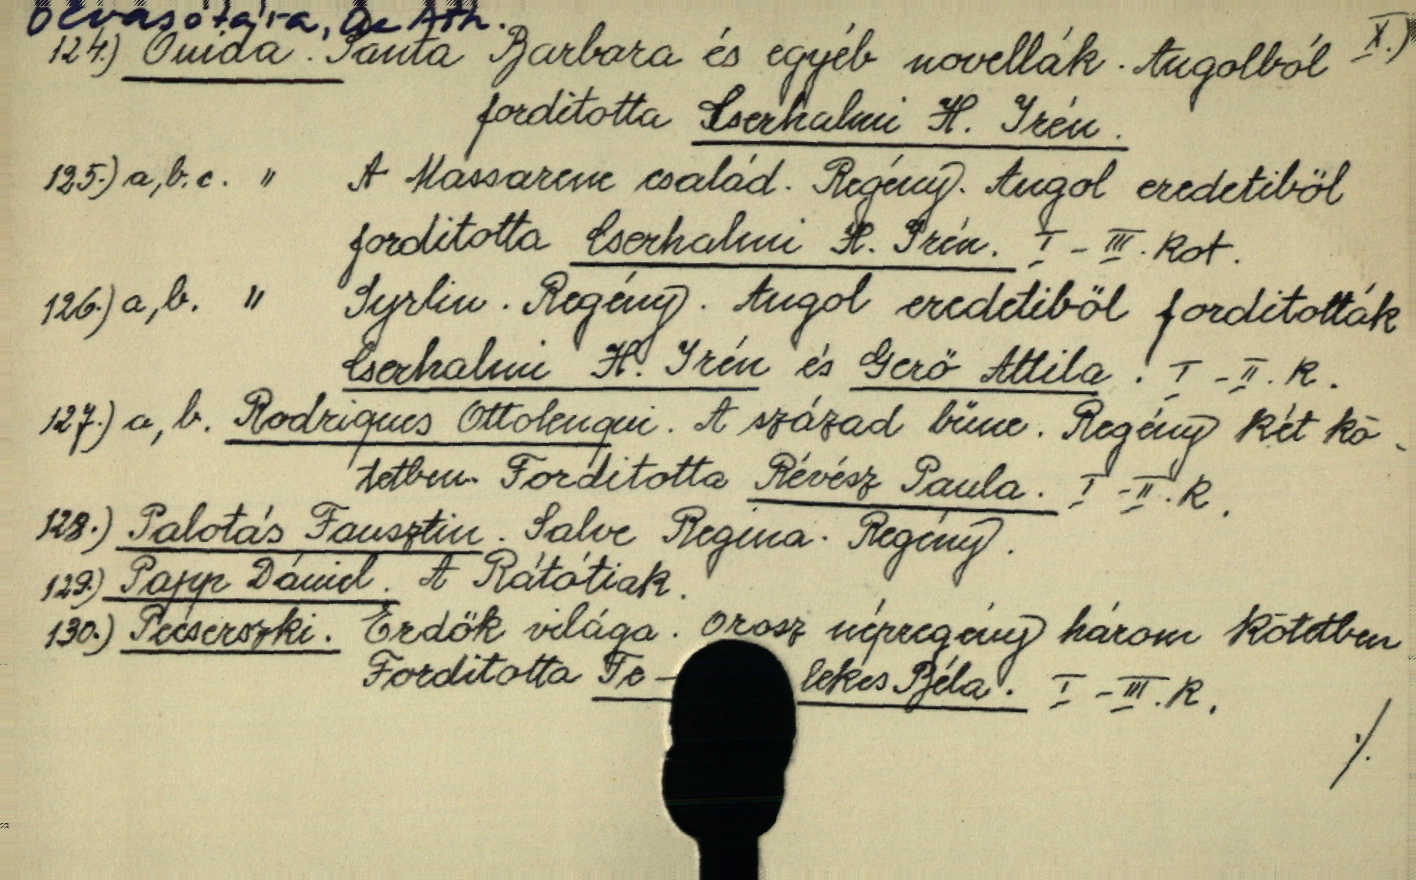 Olvasótára, Az Ath. X.)
124.) Ouida. Santa Barbara és egyéb novellák. Angolból
forditotta Cserhalmi H. Irén.
125.) a, b. c. " A Massarene család. Regény. Angol eredetiből
forditotta Cserhalmi H. Irén. I – III. Köt.
126.) a, b. " Syrlin. Regény. Angol eredetiből forditották
Cserhalmi H. Irén és Gerő Attila. I – II. K.
127.) a, b. Rodrigues Ottolengui. A század bűne. Regény két kö-
tetben. Forditotta Révész Paula. I – II. K.
128.) Palotás Fausztin. Salve Regina. Regény.
129.) Papp Dániel. A Rátótiak.
130.) Pecserszki. Erdők világa. Orosz népregény három kötetben
Forditotta Fe – lekes Béla. I – III. K.
./.